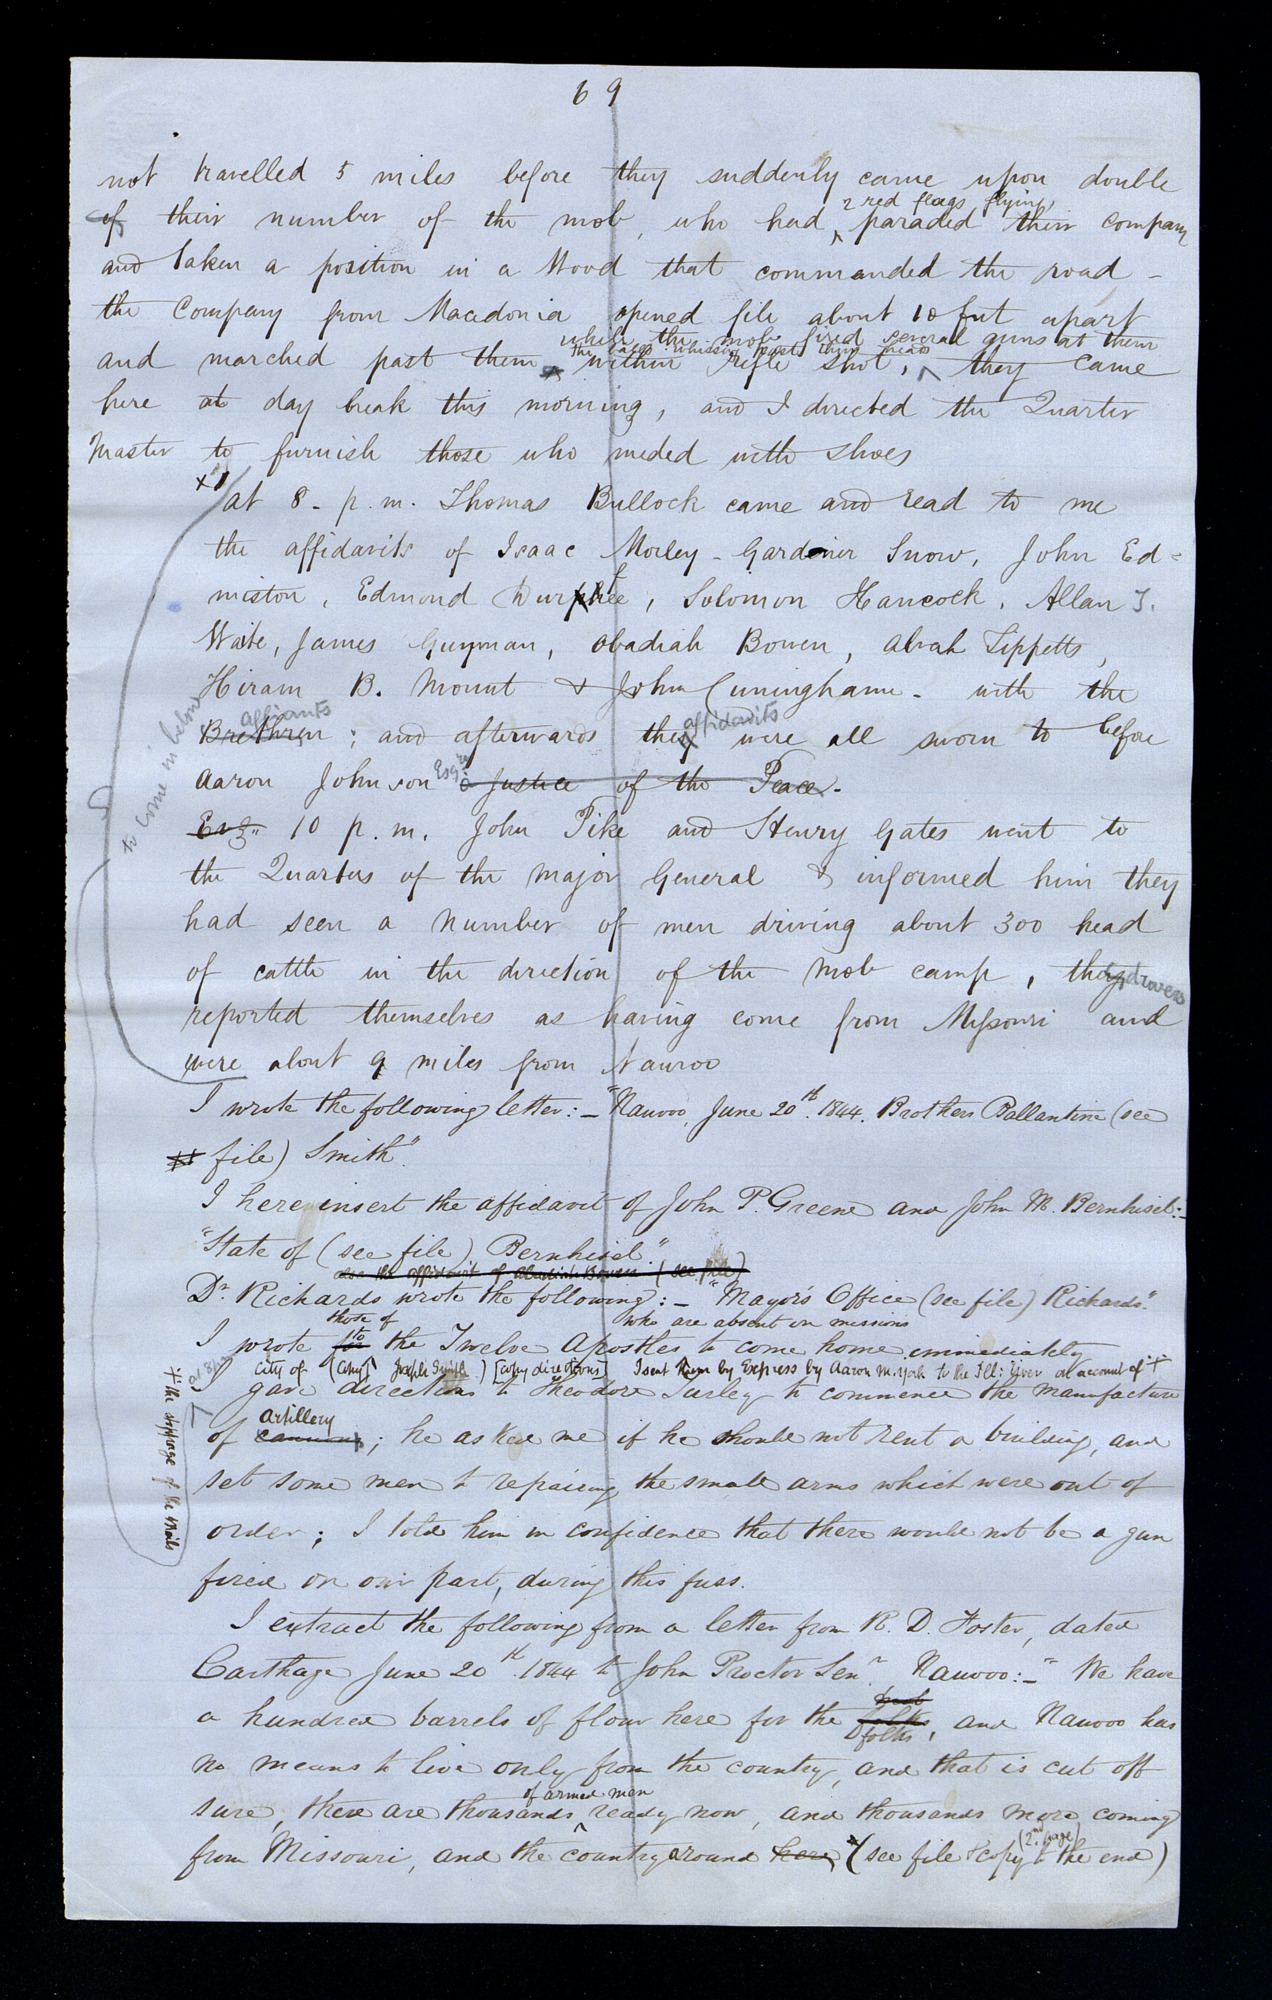 69
not travelled 5 miles before they suddenly came upon double
2 red flags flying,
of their number of the mob, who had ^ paraded their company
and taken a position in a Wood that commanded the road -
the Company from Macedonia opened file about 10 feet apart
while the mob fired several guns at them
the balls whissing past their heads
and marched past them within rifle shot, ^ they came
here at day break this morning, and I directed the Quarter
Master to furnish those who needed with shoes
at 8 - p. m. Thomas Bullock came and read to me
the affidavits of Isaac Morley - Gardiner Snow, John Ed=
miston, Edmond Durfee, Solomon Hancock, Allan T.
Waite, James Guyman, Obadiah Bowen, Alvah Tippetts,
Hiram B. Mount & John Cuninghame - with the
affiants affidavits
Brethren; and afterwards they were all sworn to before
Aaron Johnson Esqre a Justice of the Peace.
to come in below
Evg. 10 p. m. John Pike and Henry Gates went to
the Quarters of the Major General & informed him they
had seen a number of men driving about 300 head
of cattle in the direction of the mob camp, they drovers
reported themselves as having come from Missouri and
were about 9 miles from Nauvoo
I wrote the following letter: - "Nauvoo, June 20th. 1844. Brothers Ballantine (see
file) Smith".
I here insert the affidavit of John P. Greene and John M. Bernhisel: -
"State of (see file) Bernhisel."
also the affidavit of Obadiah Bowen (see file)
Dr. Richards wrote the following: - "Mayor's Office (see file) Richards."
those of who are absent on missions
I wrote for to the Twelve Apostles to come home immediately
city of (Copy Joseph Smith) [copy directions] I sent them by Express by Aaron M. York to the Ill: River on account of +
+ the stoppage of the Mails
I gave directions to Theodore Turley to commence the manufacture
artillery
of cannons; he asked me if he should not rent a building, and
set some men to repairing the small arms which were out of
order; I told him in confidence that there would not be a gun
fired on our part, during this fuss.
I extract the following from a letter from R. D. Foster, dated
Carthage June 20th. 1844 to John Proctor Senr. Nauvoo: - "We have
a hundred barrels of flour here for the folks, and Nauvoo has
folks
no means to live only from the country, and that is cut off
of armed men
sure, there are thousands ^ ready now, and thousands more coming
(2nd. page)
from Missouri, and the country around here (see file & copy to the end)